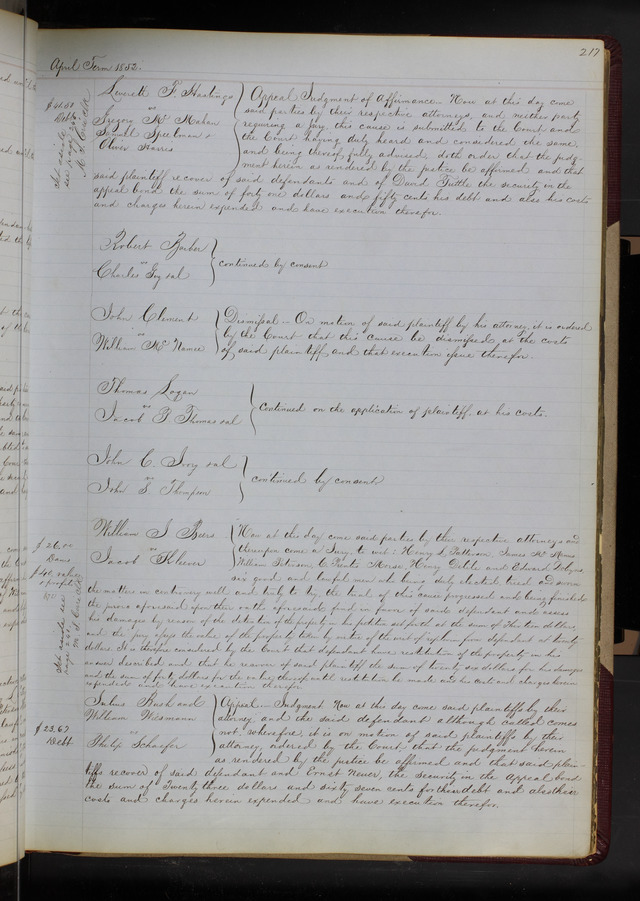 217
April Term 1852.
Leverett F Hastings
vs
Gregory Mc Mahan
Samuel Speelman &
Oliver Harris
Appeal Judgment of Affirmance. Now at this day come
said parties by their respective attorneys, and neither party
requiring a jury, this cause is submitted to the Court and
the Court having duly heard and considered the same,
and being thereof fully advised doth order that the judg-
ment herein as rendered by the justice be affirmed and that
said plaintiff recover of said defendants and of David Tuttle the security in the
appeal bond the sum of forty one dollars and fifty cents his debt and also his costs
and charges herein expended and have execution therefor.
$41.50
Debt
Robert Barber
vs
Charles Ivy et al
continued by consent
John Clement
vs
William Mc Namee
Dismissal — On motion of said plaintiff by his attorney, it is ordered
by the Court that this cause be dismissed at the costs
of said plaintiff and that execution issue therefor.
Thomas Logan
vs
Jacob T Thomas et al
continued on the application of plaintiff at his costs.
John C. Ivory et al
vs
John S. Thompson
continued by consent
William J Beers
vs
Jacob
Now at this day come said parties by their respective attorneys and
thereupon come a Jury, to wit: Henry L Patterson, James
William Peterson, Morse, Henry and Edward
six good and lawful men who being duly elected, tried and sworn
the matters in controversy well and truly to try, the trial of this cause progressed and being finished
the jurors aforesaid upon their oaths aforesaid find in favor of said defendant and assess
his damages by reason of the detention of the property in his petition set forth at the sum of Thirteen dollars,
and the jury assess the value of the property taken by virtue of the writ of replevin from defendant at twenty
dollars. It is therefore considered by the Court that defendant have restitution of the property in his
answer described and that he recover of said plaintiff the sum of twenty six dollars for his damages
and the sum of forty dollars for the value thereof until restitution be made and his costs and charges herein
expended and have execution therefor.
$26.00
Dams
$40. value
of propty
Set aside see
page
Julius Buschand
William Wismann
vs
Philip Schaefer
Appeal — Judgment Now at this day come said plaintiffs by their
attorney, and the said defendant although called comes
not. wherefore, it is on motion of said plaintiffs by their
attorney, ordered by the Court that the judgment herein
as rendered by the justice be affirmed and that said plain-
tiffs recover of said defendant and Ernst Neuer, the security in the Appeal bond
the sum of Twenty three dollars and sixty seven cents for their debt and also their
costs and charges herein expended and have execution therefor.
$23.67
Debt